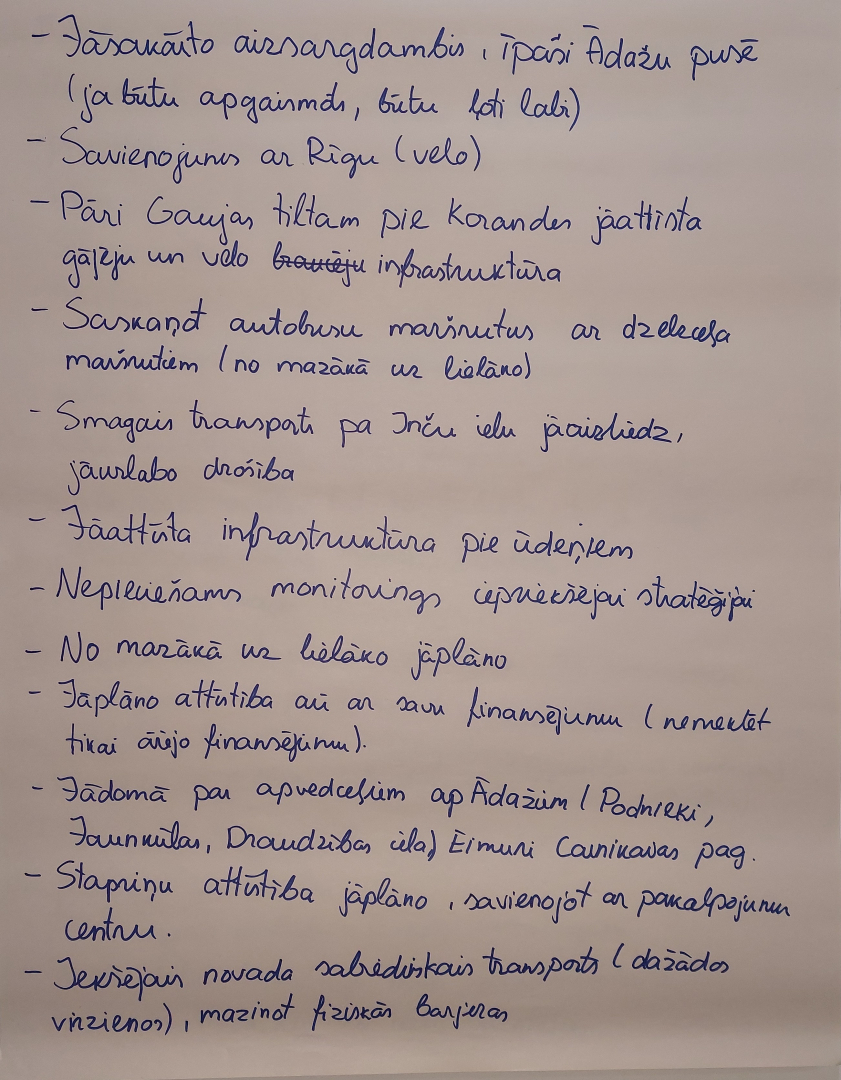 - Jāsakārto aizsargdambis, īpaši Ādažu pusē
(ja būtu apgaismots, būtu ļoti labi)
- Savienojums ar Rīgu (velo)
- Pāri Gaujas tiltam pie Korandes jāattīsta
gājēju un velo braucēju infrastruktūra
- Saskaņot autobusu maršrutus ar dzelzceļa
maršrutiem (no mazākā uz lielāko)
- Smagais transports pa Inču ielu jāaizliedz,
jāuzlabo drošība
- Jāattīsta infrastruktūra pie ūdeņiem
- Nepieciešams monitorings iepriekšējai stratēģijai
- No mazākā uz lielāko jāplāno
- Jāplāno attīstība arī ar savu finansējumu (nemeklēt
tikai ārējo finansējumu).
- Jādomā par apvedceļiem ap Ādažiem (Podnieki,
Jaunkūlas, Draudzības iela) Eimuri Carnikavas pag.
- Stapriņu attīstība jāplāno, savienojot ar pakalpojumu
centru.
- Iekšējais novada sabiedriskais transports (dažādos
virzienos), mazinot fiziskās barjeras